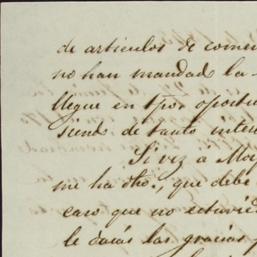 de articulos de comer
no han mandad la
llegue en tpo. oportu
siendo de tanto inter
Si vez a Mo
me ha dho., que debe
caso que no estuvie
le darás las gracias p